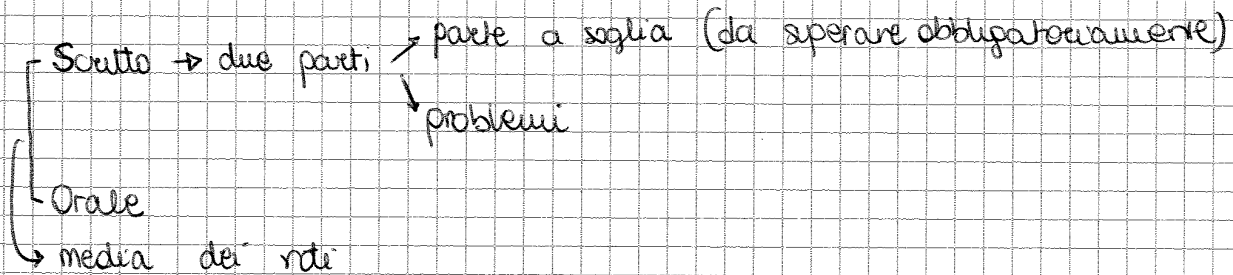 Scritto → due parti ↗ parte a soglia (da superare obbligatoriamente)
↘ problemi
Orale
→ media dei voti